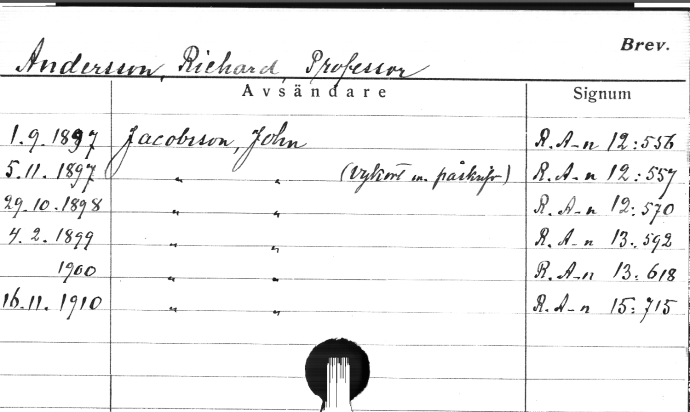 Brev.
Andersson, Richard, Professor
Avsändare Signum
1.9.1897 Jacobsson, John R.A-n 12:556
5.11.1897 " " (vykort m. påskrift) R.A-n 12:557
29.10.1898 " " R.A-n 12:570
4.2.1899 " " R.A-n 13:592
1900 " " R.A-n 13:618
16.11.1910 " " R.A-n 15:715